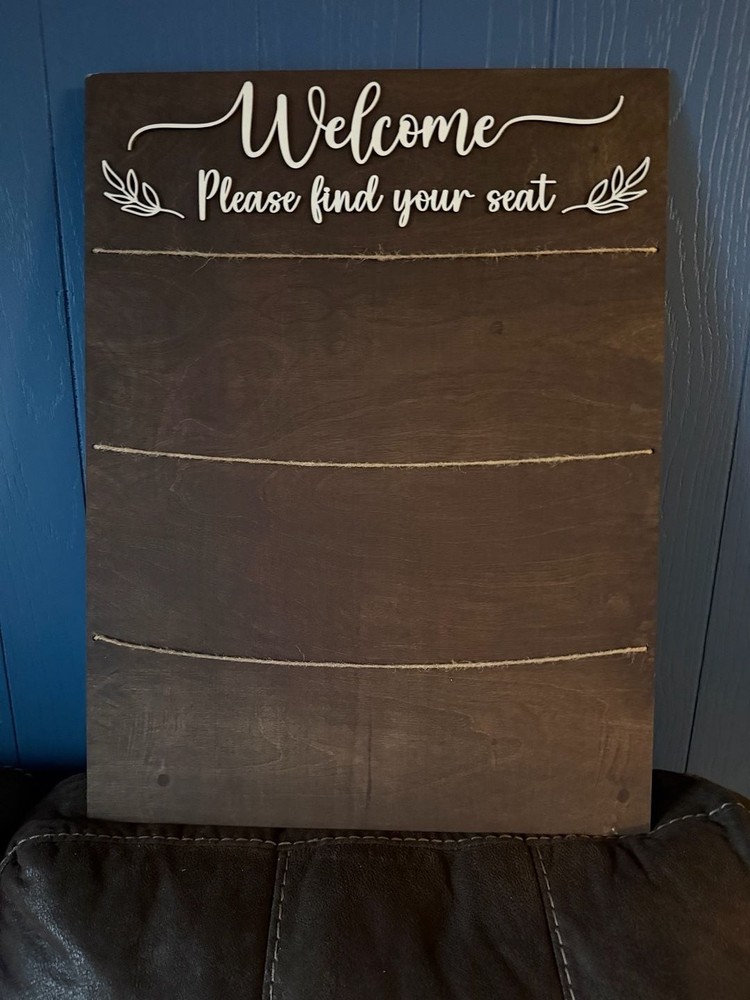 Welcome
Please find your seat